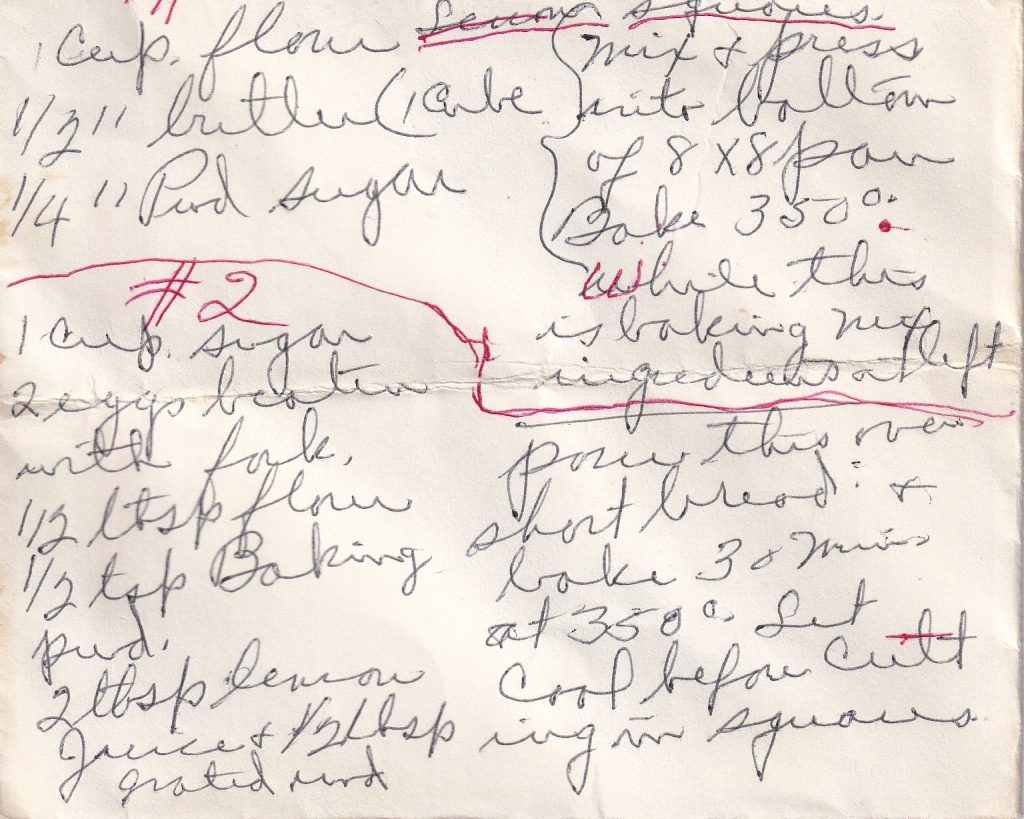 Lemon squares
1 Cup. flour
1/2 " butter (1 Cube)
1/4 " Pwd sugar
mix & press
into bottom
of 8 x 8 pan
Bake 350°.
While this
is baking mix
ingrediens at left
#2
1 cup. sugar
2 eggs beaten
with fork.
1/2 tbsp flour
1/2 tsp Baking
pwd.
2 tbsp lemon
Juice & 1/2 tbsp
grated rind
pour this over
short bread &
bake 30 mins
at 350°. Let
Cool before Cutt
ing in squares